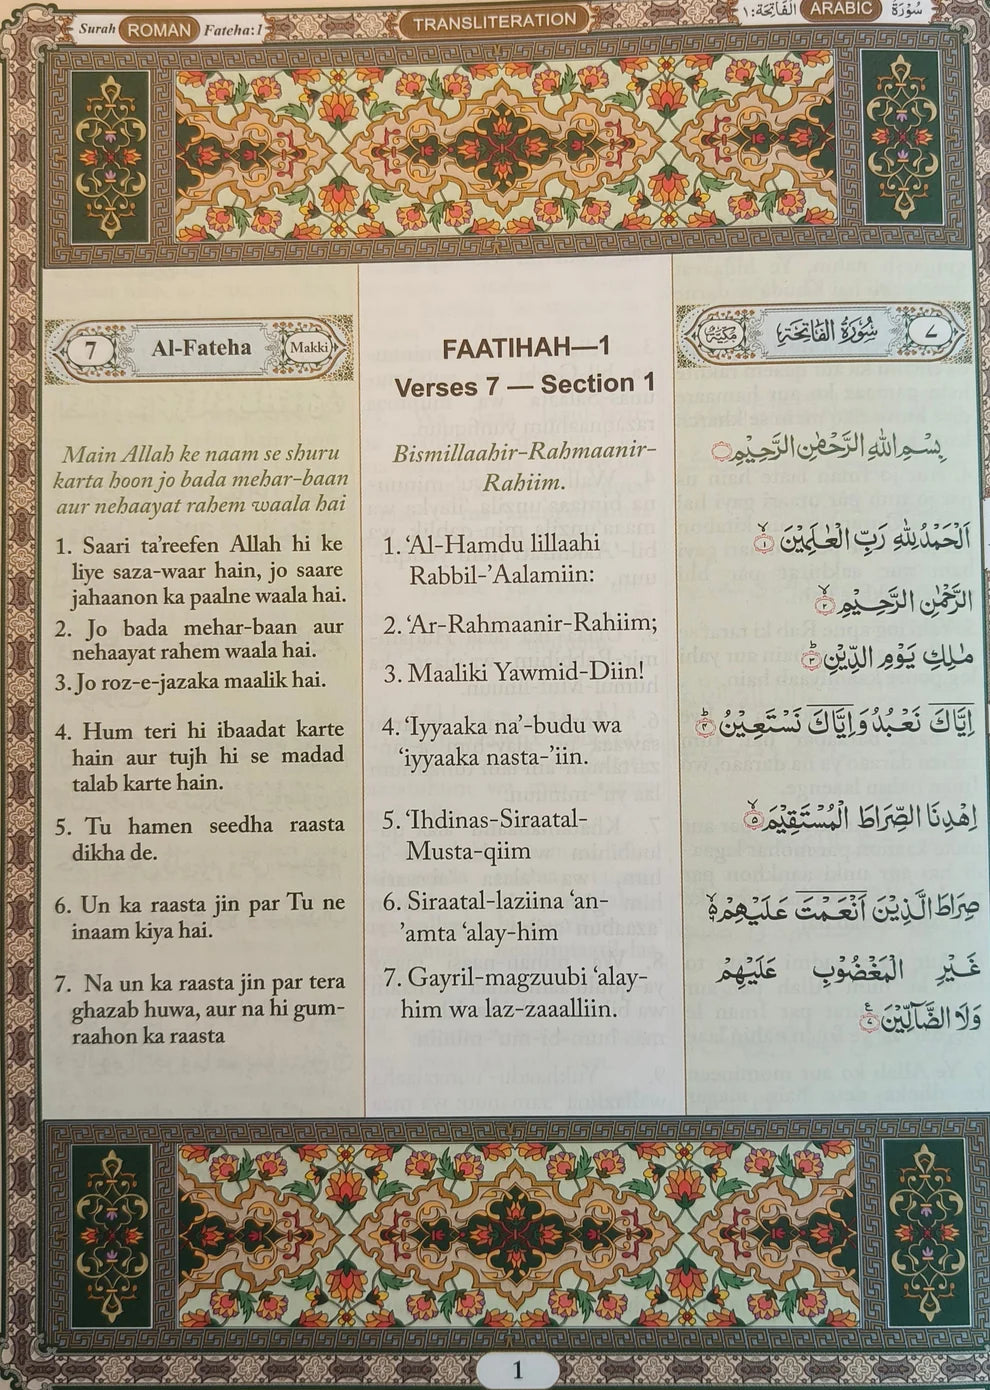 Surah ROMAN Fateha:1
TRANSLITERATION
سُوْرَةُ ARABIC الْفَاتِحَة:١
7 Al-Fateha Makki
Main Allah ke naam se shuru
karta hoon jo bada mehar-baan
aur nehaayat rahem waala hai
1. Saari ta'reefen Allah hi ke
liye saza-waar hain, jo saare
jahaanon ka paalne waala hai.
2. Jo bada mehar-baan aur
nehaayat rahem waala hai.
3. Jo roz-e-jazaka maalik hai.
4. Hum teri hi ibaadat karte
hain aur tujh hi se madad
talab karte hain.
5. Tu hamen seedha raasta
dikha de.
6. Un ka raasta jin par Tu ne
inaam kiya hai.
7. Na un ka raasta jin par tera
ghazab huwa, aur na hi gum-
raahon ka raasta
FAATIHAH—1
Verses 7 — Section 1
Bismillaahir-Rahmaanir-
Rahiim.
1. ‘Al-Hamdu lillaahi
Rabbil-’Aalamiin:
2. ‘Ar-Rahmaanir-Rahiim;
3. Maaliki Yawmid-Diin!
4. ‘Iyyaaka na’-budu wa
‘iyyaaka nasta-’iin.
5. ‘Ihdinas-Siraatal-
Musta-qiim
6. Siraatal-laziina ‘an-
’amta ‘alay-him
7. Gayril-magzuubi ‘alay-
him wa laz-zaaalliin.
٧ سُوْرَةُ الْفَاتِحَةِ مَكِّيَّةٌ
بِسْمِ اللهِ الرَّحْمٰنِ الرَّحِيْمِ
اَلْحَمْدُ لِلّٰهِ رَبِّ الْعٰلَمِيْنَ ۙ‏﴿۱﴾
الرَّحْمٰنِ الرَّحِيْمِ ۙ‏﴿۲﴾
مٰلِكِ يَوْمِ الدِّيْنِ ؕ‏﴿۳﴾
اِيَّاكَ نَعْبُدُ وَاِيَّاكَ نَسْتَعِيْنُ ؕ‏﴿۴﴾
اِهْدِنَا الصِّرَاطَ الْمُسْتَقِيْمَ ۙ‏﴿۵﴾
صِرَاطَ الَّذِيْنَ اَنْعَمْتَ عَلَيْهِمْ ۙ‏﴿۶﴾
غَيْرِ الْمَغْضُوْبِ عَلَيْهِمْ
وَلَا الضَّآلِّيْنَ ‏﴿۷﴾
1